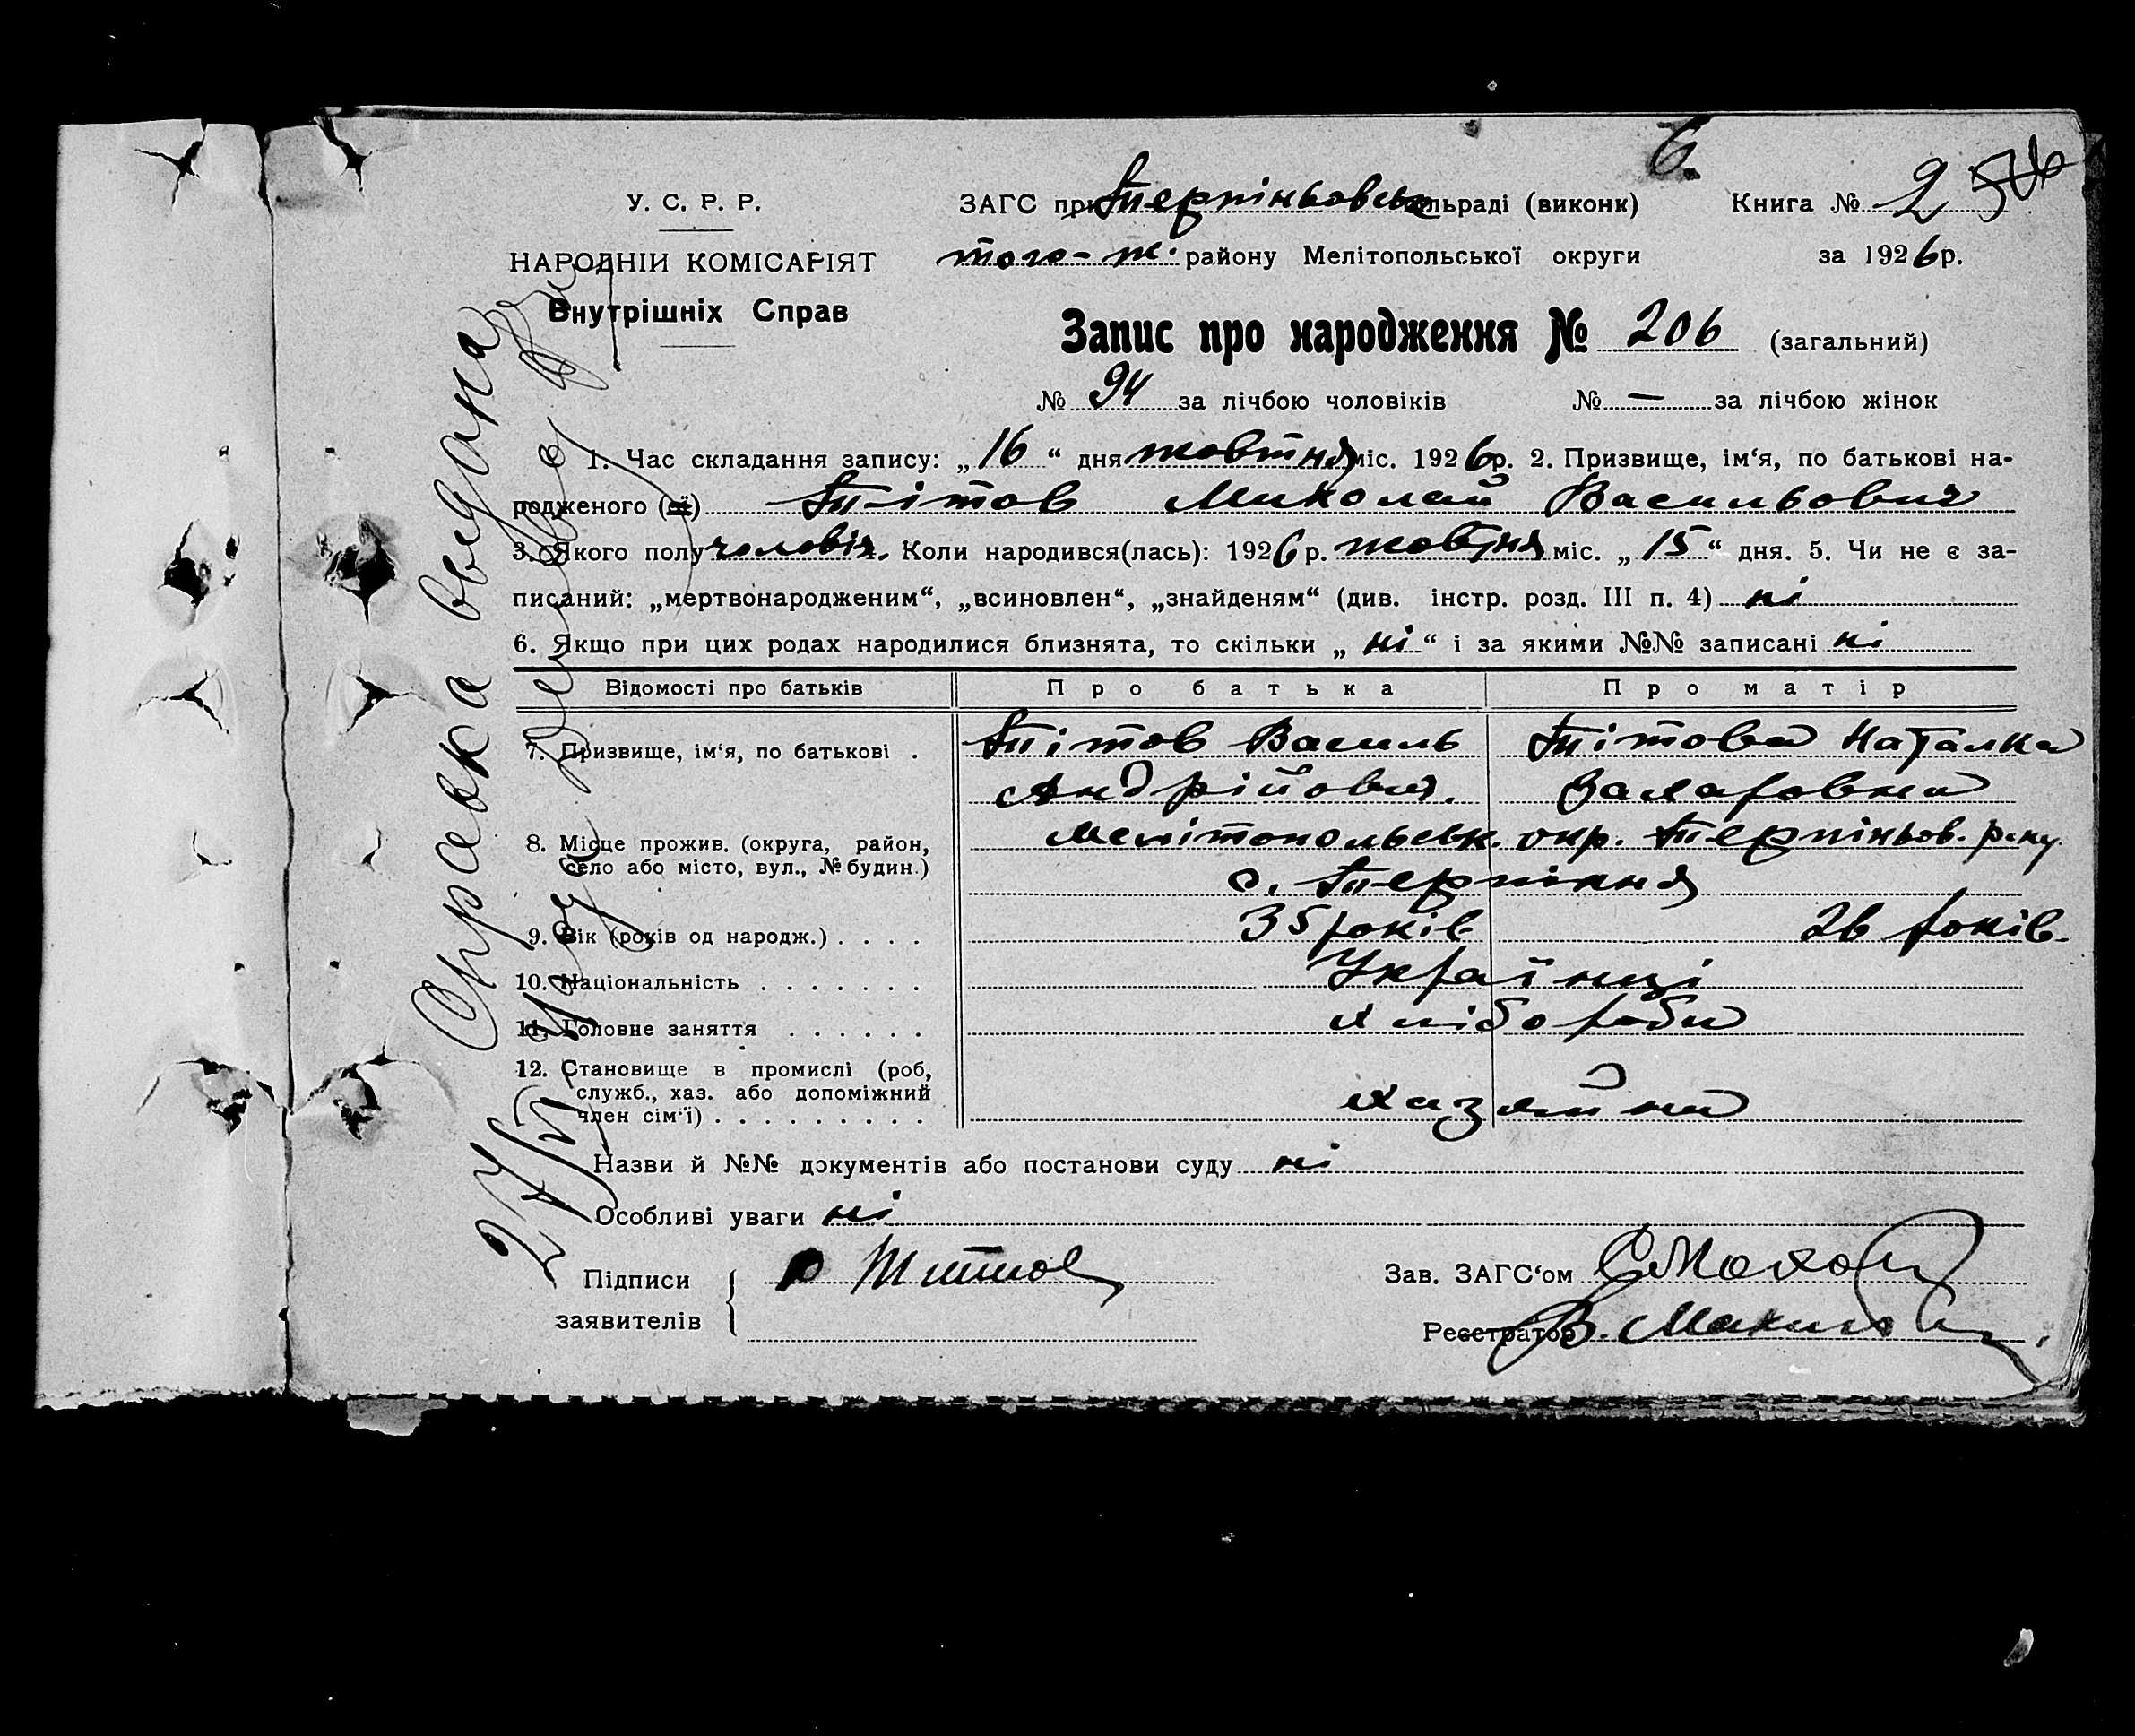 6.
У. С. Р. Р.
НАРОДНІЙ КОМІСАРІЯТ
Внутрішніх Справ
ЗАГС при Терпіньовськ сільраді (виконк) Книга № 2
того-ж. району Мелітопольської округи за 1926 р.
Запис про народження № 206 (загальний)
№ 94 за лічбою чоловіків № — за лічбою жінок
1. Час складання запису: „16“ дня жовтня міс. 1926 р. 2. Призвище, ім‘я, по батькові на-
родженого (ої) Тітов Миколай Васильович
3. Якого полу чоловіч. Коли народився(лась): 1926 р. жовтня міс. „15“ дня. 5. Чи не є за-
писаний: „мертвонародженим“, „всиновлен“, „знайденям“ (див. інстр. розд. III п. 4) ні
6. Якщо при цих родах народилися близнята, то скільки „ні“ і за якими №№ записані ні
Відомості про батьків Про батька Про матір
7. Призвище, ім‘я, по батькові . Тітов Василь Тітова Наталка
Андрійович. Захаровна
8. Місце прожив. (округа, район, Мелітопольськ. окр. Терпіньов. р-ну
село або місто, вул., № будин.) с. Терпіння
9. Вік (років од народж.) . . . . 35 років 26 років.
10. Національність . . . . . . . Українці
11. Головне заняття . . . . . . хлібороби
12. Становище в промислі (роб,
служб., хаз. або допоміжний
член сім‘ї) . . . . . . . . . хазяйни
Назви й №№ документів або постанови суду ні
Особливі уваги ні
Підписи Титов Зав. ЗАГС‘ом
заявителів Реєстратор В.
Справка выдана
27/5